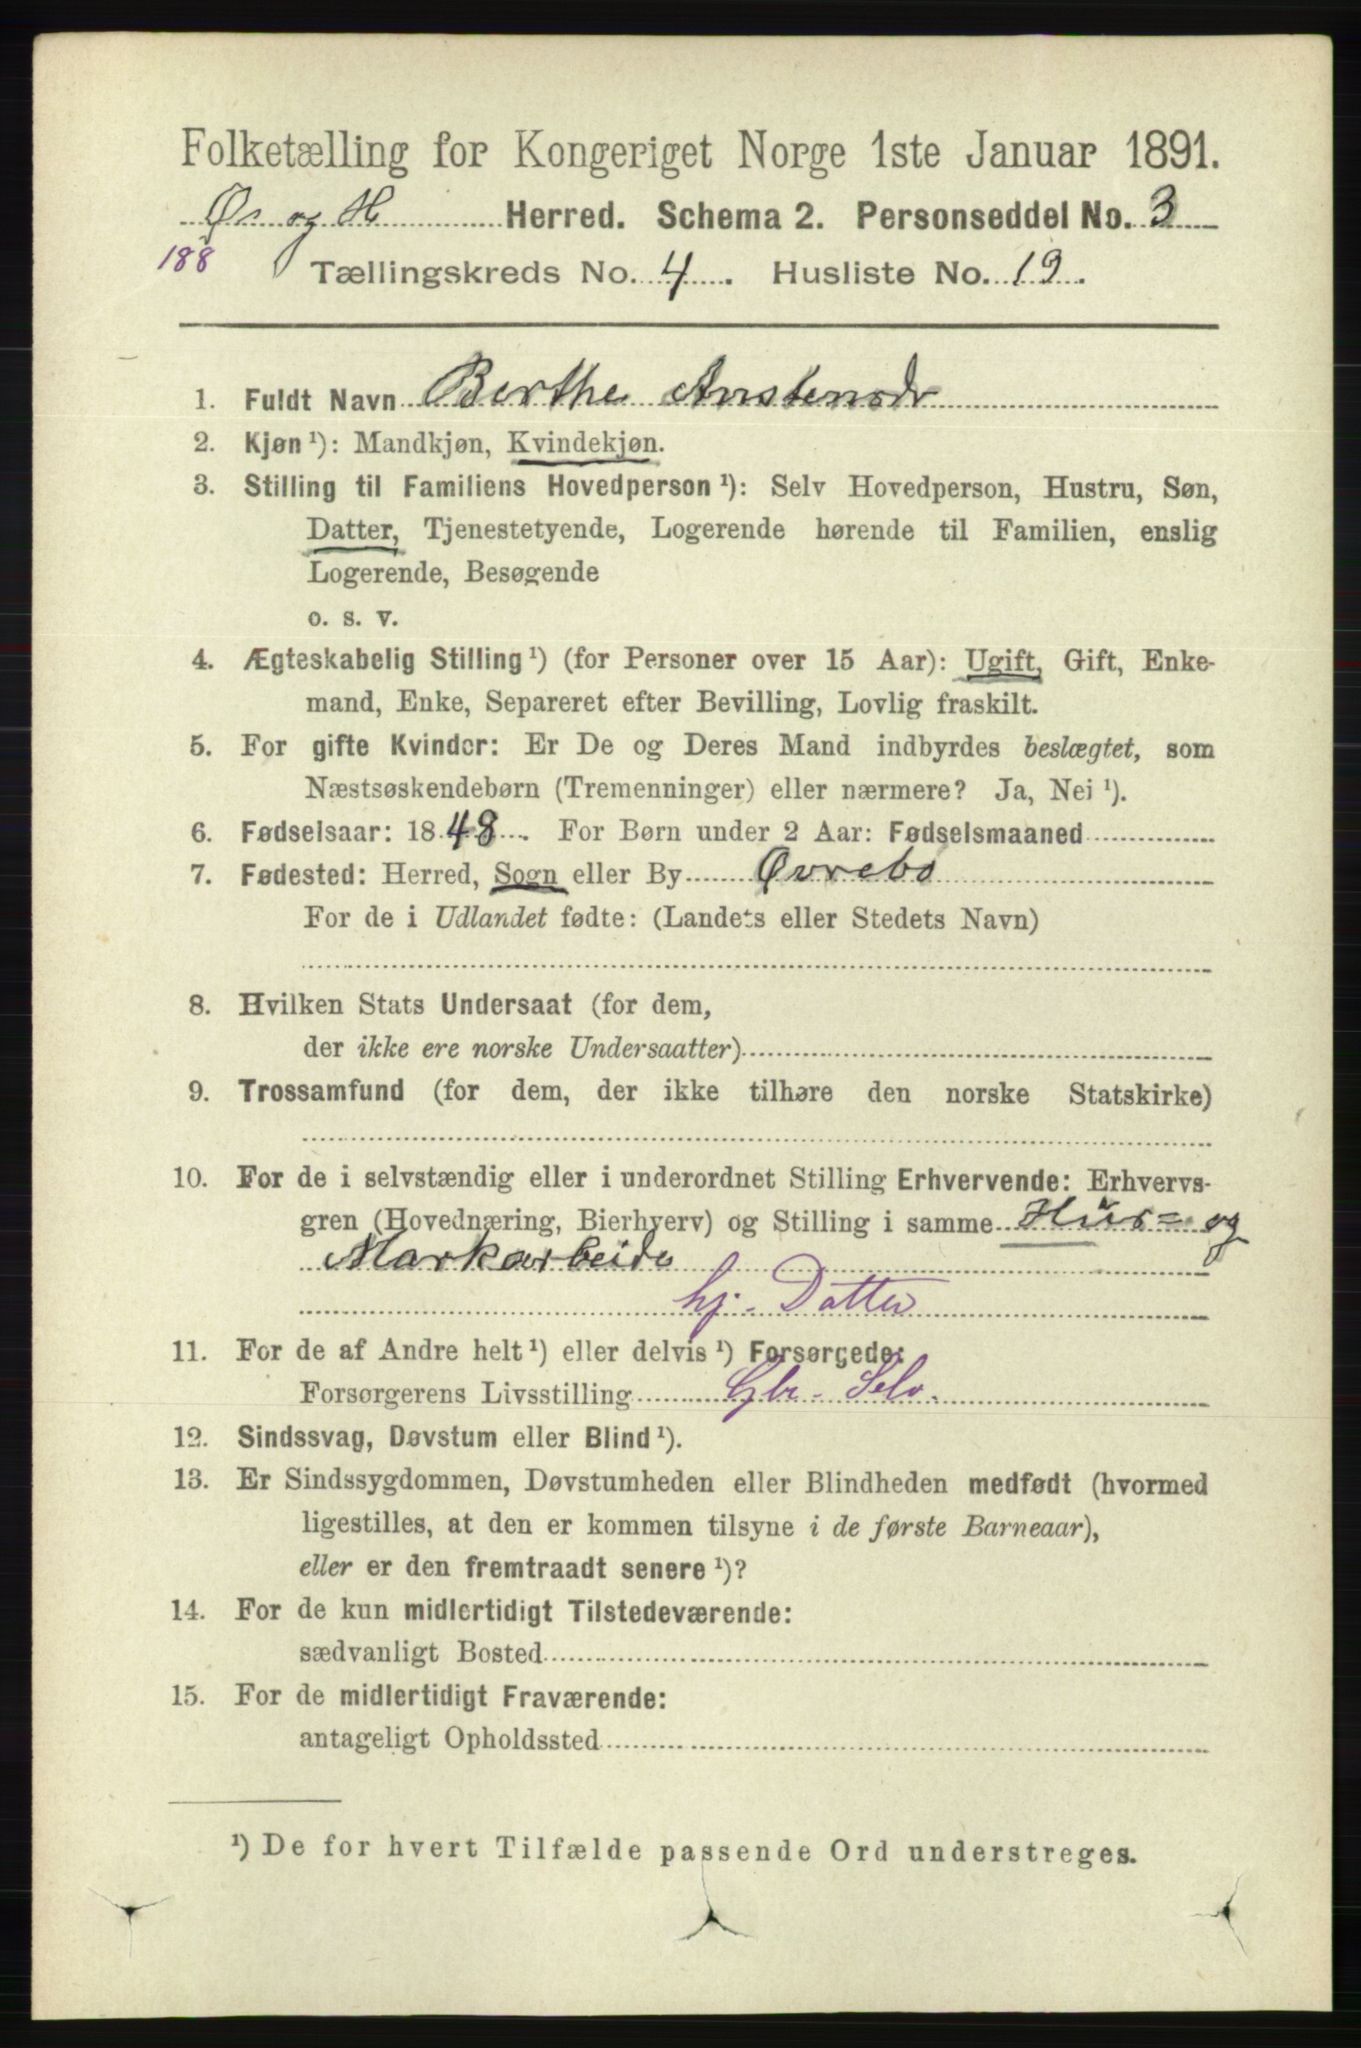 Folketælling for Kongeriget Norge 1ste Januar 1891.
Øv og H Herred. Schema 2. Personseddel No. 3
188 Tællingskreds No. 4. Husliste No. 19.
1. Fuldt Navn Berthe Anstensdr
2. Kjøn ¹): Mandkjøn, Kvindekjøn.
3. Stilling til Familiens Hovedperson ¹): Selv Hovedperson, Hustru, Søn,
Datter, Tjenestetyende, Logerende hørende til Familien, enslig
Logerende, Besøgende
o. s. v.
4. Ægteskabelig Stilling ¹) (for Personer over 15 Aar): Ugift, Gift, Enke-
mand, Enke, Separeret efter Bevilling, Lovlig fraskilt.
5. For gifte Kvinder: Er De og Deres Mand indbyrdes beslægtet, som
Næstsøskendebørn (Tremenninger) eller nærmere? Ja, Nei ¹).
6. Fødselsaar: 1848. For Børn under 2 Aar: Fødselsmaaned
7. Fødested: Herred, Sogn eller By Øvrebo
For de i Udlandet fødte: (Landets eller Stedets Navn)
8. Hvilken Stats Undersaat (for dem,
der ikke ere norske Undersaatter)
9. Trossamfund (for dem, der ikke tilhøre den norske Statskirke)
10. For de i selvstændig eller i underordnet Stilling Erhvervende: Erhvervs-
gren (Hovednæring, Bierhverv) og Stilling i samme Hus= og
Markarbeide
hj. Datter
11. For de af Andre helt ¹) eller delvis ¹) Forsørgede:
Forsørgerens Livsstilling Gbr. Selv.
12. Sindssvag, Døvstum eller Blind ¹).
13. Er Sindssygdommen, Døvstumheden eller Blindheden medfødt (hvormed
ligestilles, at den er kommen tilsyne i de første Barneaar),
eller er den fremtraadt senere ¹)?
14. For de kun midlertidigt Tilstedeværende:
sædvanligt Bosted
15. For de midlertidigt Fraværende:
antageligt Opholdssted
¹) De for hvert Tilfælde passende Ord understreges.